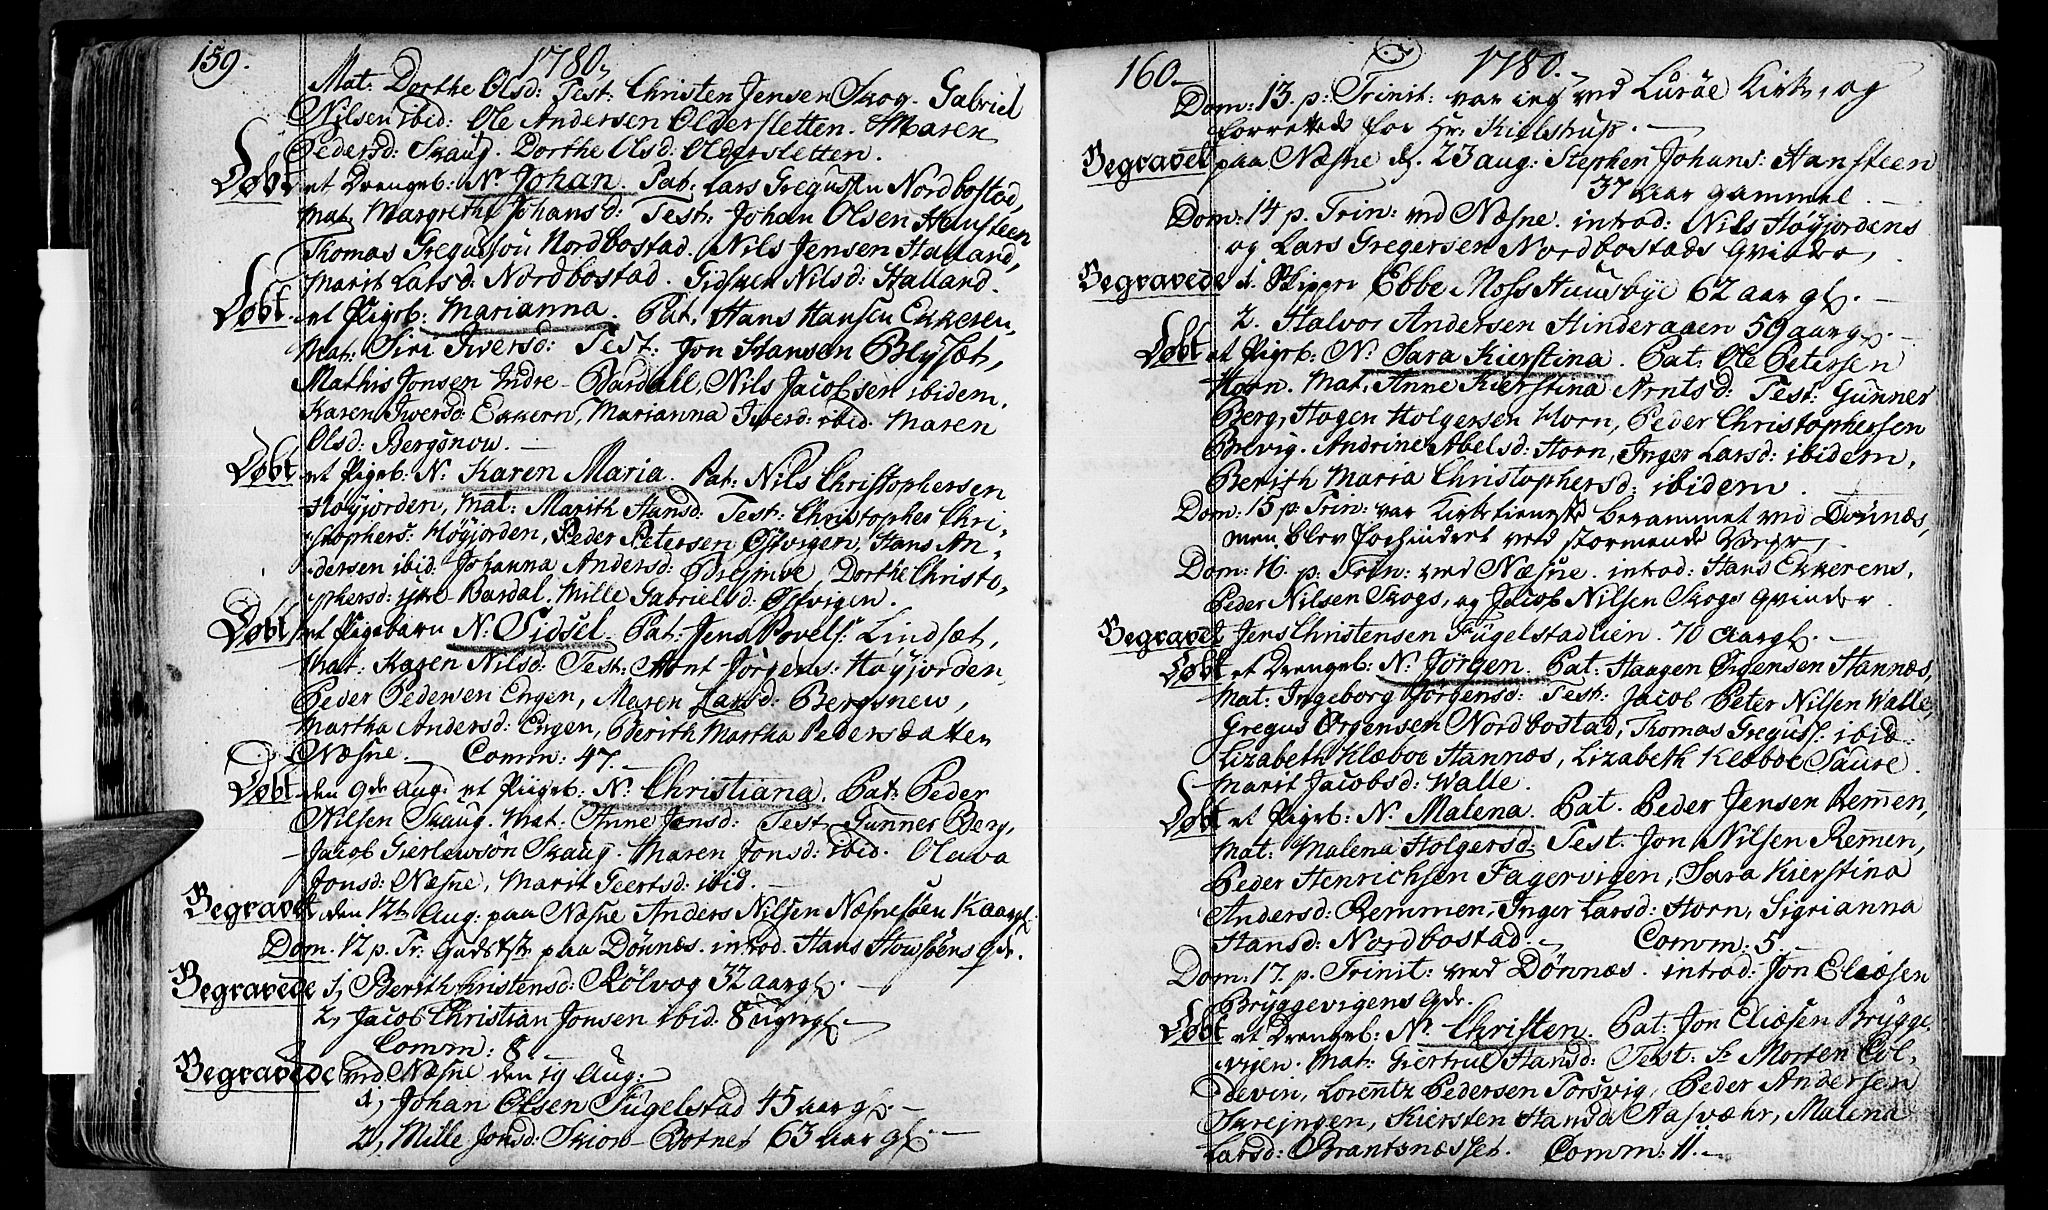 159.
1780
Mat: Dorthe Olsd: Test: Christen Jensen Skog. Gabriel
Nilsen ibid: Ole Andersen Oldersletten. Maren
Pedersd: Skaug. Dorthe Olsd: Oldersletten.
Døbt et Drengeb: N: Johan. Pat: Lars Gregussen Nordbostad,
Mat: Margrethe Johansd: Test: Johan Olsen Hensteen
Thomas Gregussøn Nordbostad. Nils Jensen Stalland,
Marit Larsd: Nordbostad. Gidsken Nilsd: Halland.
Døbt et Pigeb: Marianna. Pat. Hans Hansen Ekkeren,
Mat: Siri Iwersd: Test: Jon Hansen Blysæt,
Mathis Jonsen Indre-Bardall, Nils Jacobsen ibidem.
Karen Iwersd: Ekkern, Marianna Iwersd: ibid. Maren
Olsd: Bergsnow.
Døbt et Pigeb. N: Karen Maria. Pat: Nils Christophersen
Høyjorden, Mat: Marith Hansd: Test: Christopher Chri-
stophers: Høyjorden, Peder Petersen Østvigen, Hans An-
dersen ibid. Johanna Andersd: Dorthe Christo-
phersd: Bardal. Mille Gabrielsd: Østvigen.
Døbt et Pigebarn N: Sidsel. Pat: Jens Povels: Lindsæt,
Mat: Karen Nilsd: Test: Arnt Jørgens: Høyjorden,
Peder Pedersen Engen, Maren Larsd: Bergsnew,
Martha Andersd: Engen, Berith Martha Pedersdatter
Næsne. Comm: 47.
Døbt den 9de Aug: et Piigeb: N: Christiana. Pat: Peder
Nilsen Skaug. Mat. Anne Jonsd: Test Gunner Berg,
Jacob Gierlewsøn Skaug. Maren Jonsd: ibid. Olava
Jonsd: Næsne, Marit Geertsd: ibid.
Begravet den 12te Aug: paa Næsne Anders Nilsen Næsnesøen
Dom. 12 p. Tr: Gudstst: paa Dønnes. introd. Hans Qdr.
Begravede 1, Berith Christensd: Rølvog 32 aar gl.
2, Jacob Christian Jonsen ibid. 8 uger gl.
Comm: 8
Begravede ved Næsne den 19 Aug:
1, Johan Olsen Fugelstad 45 aar gl.
2, Mille Jonsd: Skiow-Botnet 63 aar gl.
160
1780.
Dom: 13. p: Trinit: var jeg ved Lurøe Kirke, og
forrettede for Hr: Kielstrup.
Begravet paa Næsne d. 23 aug: Stephen Johans: Hansteen
37 Aar gammel.
Dom: 14 p. Trin: ved Næsne. introd: Nils Høyjordens
og Lars Gregersen Nordbostads Qvinder,
Begravede 1. Skipper Ebbe Moss Huusbye 62 aar gl.
2. Halvor Andersen Hinderaaen 59 aar gl.
Døbt et Pigeb: N: Sara Kierstina. Pat: Ole Petersen
Horn. Mat: Anne Kierstina Arntsd: Test: Gunner
Berg, Hogen Holgersen Horn, Peder Christophersen
Brevig. Andrine Abelsd: Horn, Inger Larsd: ibidem,
Berith Maria Christophersd: ibidem.
Dom: 15 p. Trin: var Kirketieneste berammet ved Dønnæs,
men blev forhindret ved stormende Veyr,
Dom: 16. p: Trin: ved Næsne. introd: Hans Ekkerens,
Peder Nilsen Skogs, og Jacob Nilsen Skogs Qvinder.
Begravet Jens Christensen Fugelstadlien. 70 Aar gl.
Døbt et Drengeb: N: Jørgen. Pat: Haagen Ørgensen Hannæs,
Mat: Ingeborg Jørgensd: Test: Jacob Peter Nilsen Walle,
Gregus Ørgensen Nordbostad, Thomas Greguss. ibid.
Lizabeth Klæboe Hannæs, Lizabeth Klæboe Saure.
Marit Jacobsd: Walle.
Døbt et Pigeb: N: Malena. Pat. Peder Jensen Remen,
Mat: Malena Holgersd: Test: Jon Nilsen Remen,
Peder Henrichsen Fagervigen, Sara Kierstina
Andersd: Remmen, Inger Larsd: Horn, Sigrianna
Hansd: Nordbostad. Comm: 5.
Dom: 17. p. Trinit: ved Dønnæs. introd: Jon Eliæsen
Bryggevigens Qdr.
Døbt et Drengeb: N: Christen. Pat: Jon Eliæsen Brygge-
vigen. Mat: Giertrue Hansd: Test: Sr Morten Col-
devin, Lorentz Pedersen Torsvig, Peder Andersen
Skrejngen, Kiersten Hansd Rasvæhr, Malena
Larsd: Brantsnæsset. Comm: 11.